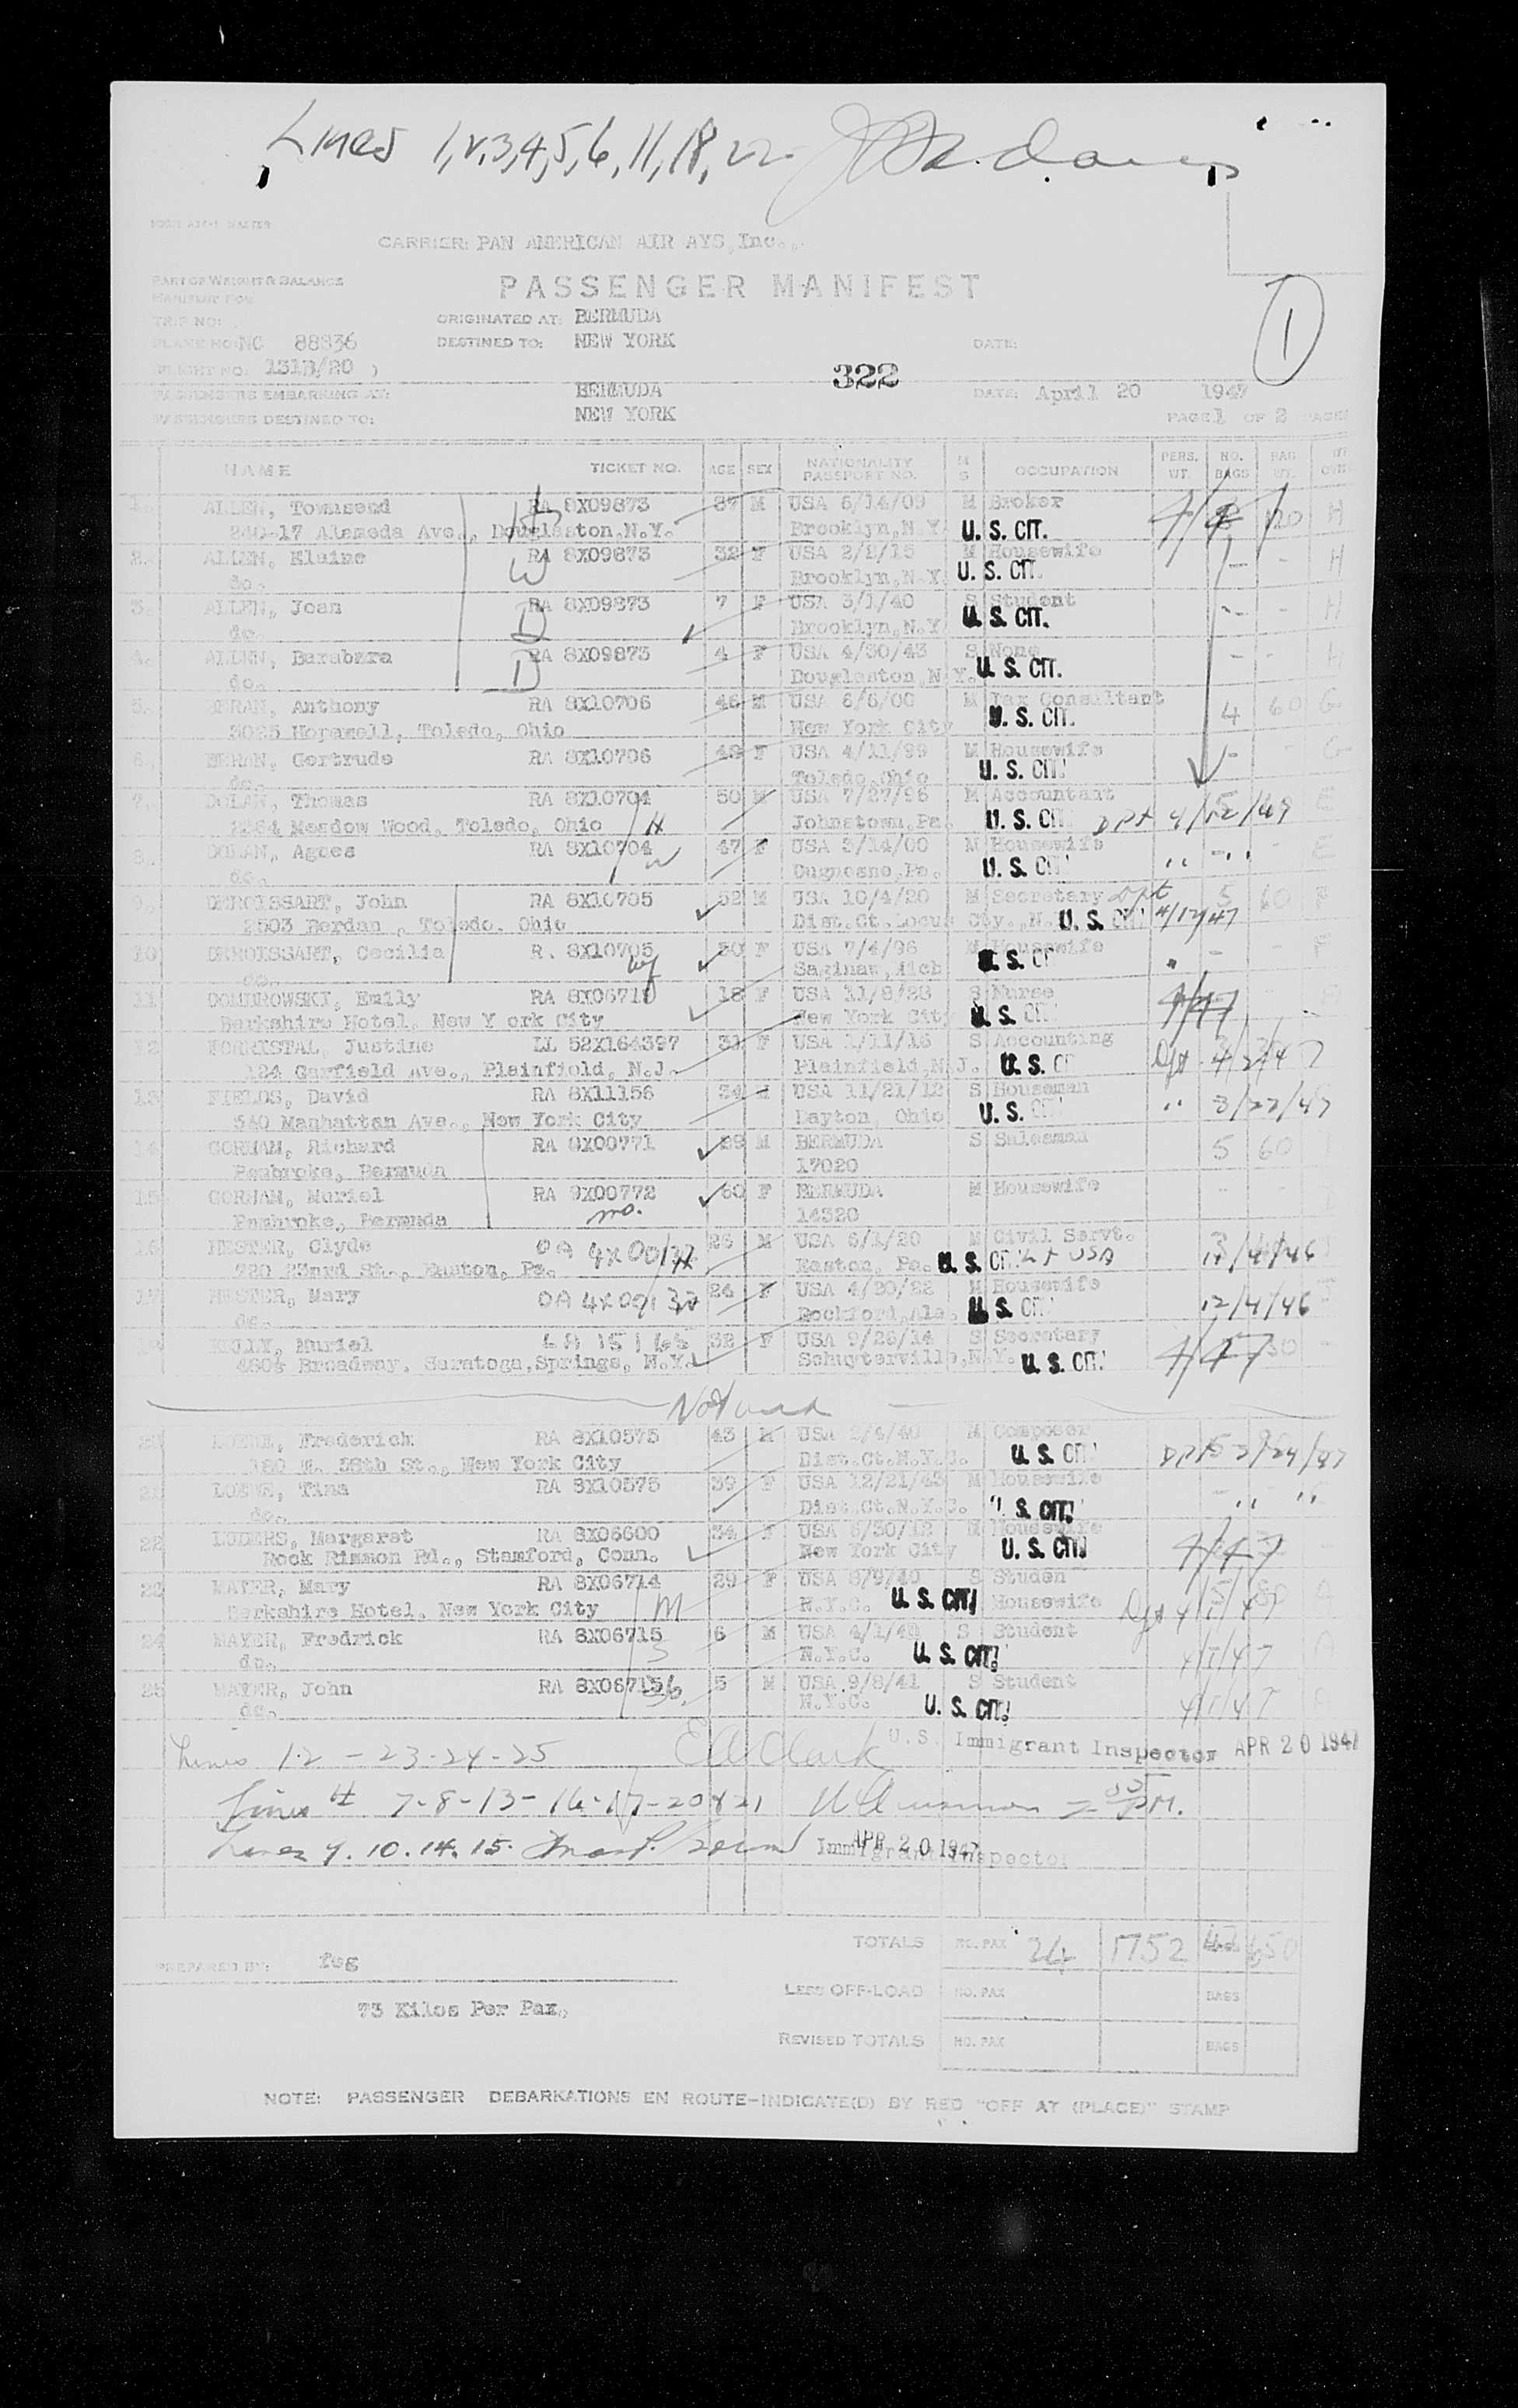 Lines 1, 2, 3, 4, 5, 6, 11, 18, 22
CARRIER: PAN AMERICAN AIR AYS, Inc.,
PART OF WEIGHT & BALANCE
MANIFEST FOR
PASSENGER MANIFEST
1
TRIP NO:
ORIGINATED AT: BERMUDA
PLANE NO: NC 88836
DESTINED TO: NEW YORK
DATE:
FLIGHT NO. 131B/20 )
322
PASSENGERS EMBARKING AT: BERMUDA
DATE: April 20 1947
PASSENGERS DESTINED TO: NEW YORK
PAGE 1 OF 2 PAGES
NAME TICKET NO. AGE SEX NATIONALITY PASSPORT NO. M S OCCUPATION PERS. WT. NO. BAGS BAG WT.
1. ALLEN, Townsend RA 8X09873 37 M USA 6/14/09 M Broker H
240-17 Alameda Ave., Douglaston, N.Y. Brooklyn, N.Y. U. S. CIT.
2. ALLEN, Elaine W RA 8X09873 32 F USA M Housewife - - H
do. Brooklyn, N.Y. U. S. CIT.
3. ALLEN, Joan RA 8X09873 7 F USA 3/1/40 S Student - - H
do. D Brooklyn, N.Y. U. S. CIT.
4. ALLEN, Barabara RA 8X09873 4 F USA 4/30/43 S None - - H
do. D Douglaston, N.Y. U. S. CIT.
5. Anthony RA 8X10706 46 M USA 6/6/00 M Tax Consultant 4 60 G
Toledo, Ohio New York City U. S. CIT.
6. Gertrude RA 8X10706 48 F USA 4/11/99 M Housewife - G
do. Toledo, Ohio U. S. CIT.
7. DOLAN, Thomas RA 8X10704 50 M USA 7/27/96 M Accountant E
2264 Meadow Wood, Toledo, Ohio H Johnstown, Pa. U. S. CIT Dpt 4/12/47
8. DOLAN, Agnes RA 8X10704 W 47 F USA 3/14/00 M Housewife - - E
do. Duquesne, Pa. U. S. CIT
9. DEROISSART, John RA 8X10705 52 M USA 10/4/20 M Secretary Dpt 5 60 F
2503 Berdan , Toledo, Ohio Dist. Ct. U. S. CIT 4/12/47
10 DEROISSART, Cecilia R. 8X10705 50 F USA 7/4/96 M Housewife - - F
do. wf Saginaw, Mich U. S. CI
11 DOMBROWSKI, Emily RA 8X06713 18 F USA 11/8/28 S Nurse 4/47
Berkshire Hotel, New Y ork City New York City U. S. CIT
12 FORRISTAL, Justine LL 52X164397 31 F USA 1/11/16 S Accounting
124 Garfield Ave., Plainfield, N.J. Plainfield, N.J. U. S. CI Dpt 4/2/47
13 FIELDS, David RA 8X11156 34 M USA 11/21/12 S Houseman
540 Manhattan Ave., New York City Dayton, Ohio U. S. CIT " 3/22/47
14 GORHAM, Richard RA 9X00771 29 M BERMUDA S Salesman 5 60
Pembroke, Bermuda 17020
15 GORHAM, Muriel RA 9X00772 60 F BERMUDA M Housewife - -
Pembroke, Bermuda mo. 14320
16 HESTER, Clyde OA 4X00137 26 M USA 6/1/20 M Civil Servt.
720 23rd St., Easton, Pa. H Easton, Pa. U. S. CIT
17 HESTER, Mary OA 4X00137 24 F USA 4/20/22 M Housewife
do. Rockford, Ala. U. S. CIT 12/4/46
18 KELLY, Muriel 32 F USA 9/26/14 S Secretary 30
Broadway, Saratoga, Springs, N.Y. Schuyterville, N.Y. U. S. CIT 4/47
Not used
20 LOEWE, Frederich RA 8X10575 43 M USA M Composer
180 E. 58th St., New York City Dist. Ct. N.Y.C. U. S. CIT Dpt 3/24/47
21 LOEWE, Tina RA 8X10575 39 F USA 12/21/43 M Housewife -
do. Dist. Ct. N.Y.C. U. S. CIT " "
22 LUDERS, Margaret RA 8X06600 34 F USA 6/30/12 M Housewife
Rock Rimmon Rd., Stamford, Conn. New York City U. S. CIT 4/47
23 MAYER, Mary RA 8X06714 29 F USA 8/9/40 S Studen 5 80 A
Berkshire Hotel, New York City M N.Y.C. U. S. CIT Housewife Dpt 4/1/47
24 MAYER, Fredrick RA 8X06715 6 M USA 4/1/40 S Student A
do. S N.Y.C. U. S. CIT. 4/1/47
25 MAYER, John RA 8X06715 5 M USA 9/8/41 S Student A
do. N.Y.C. U. S. CIT. 4/1/47
Lines 12 - 23-24-25 E A Clark U.S. Immigrant Inspector APR 20 1947
Lines 7-8-13-16-17-20 & 21 PM.
Lines 9. 10. 14. 15. Immigrant Inspector APR 20 1947
TOTALS NO. PAX 24 1752 650
PREPARED BY: fog
LESS OFF-LOAD NO. PAX BAGS
73 Kilos Per Pax.
REVISED TOTALS NO. PAX BAGS
NOTE: PASSENGER DEBARKATIONS EN ROUTE-INDICATE(D) BY RED "OFF AT (PLACE)" STAMP